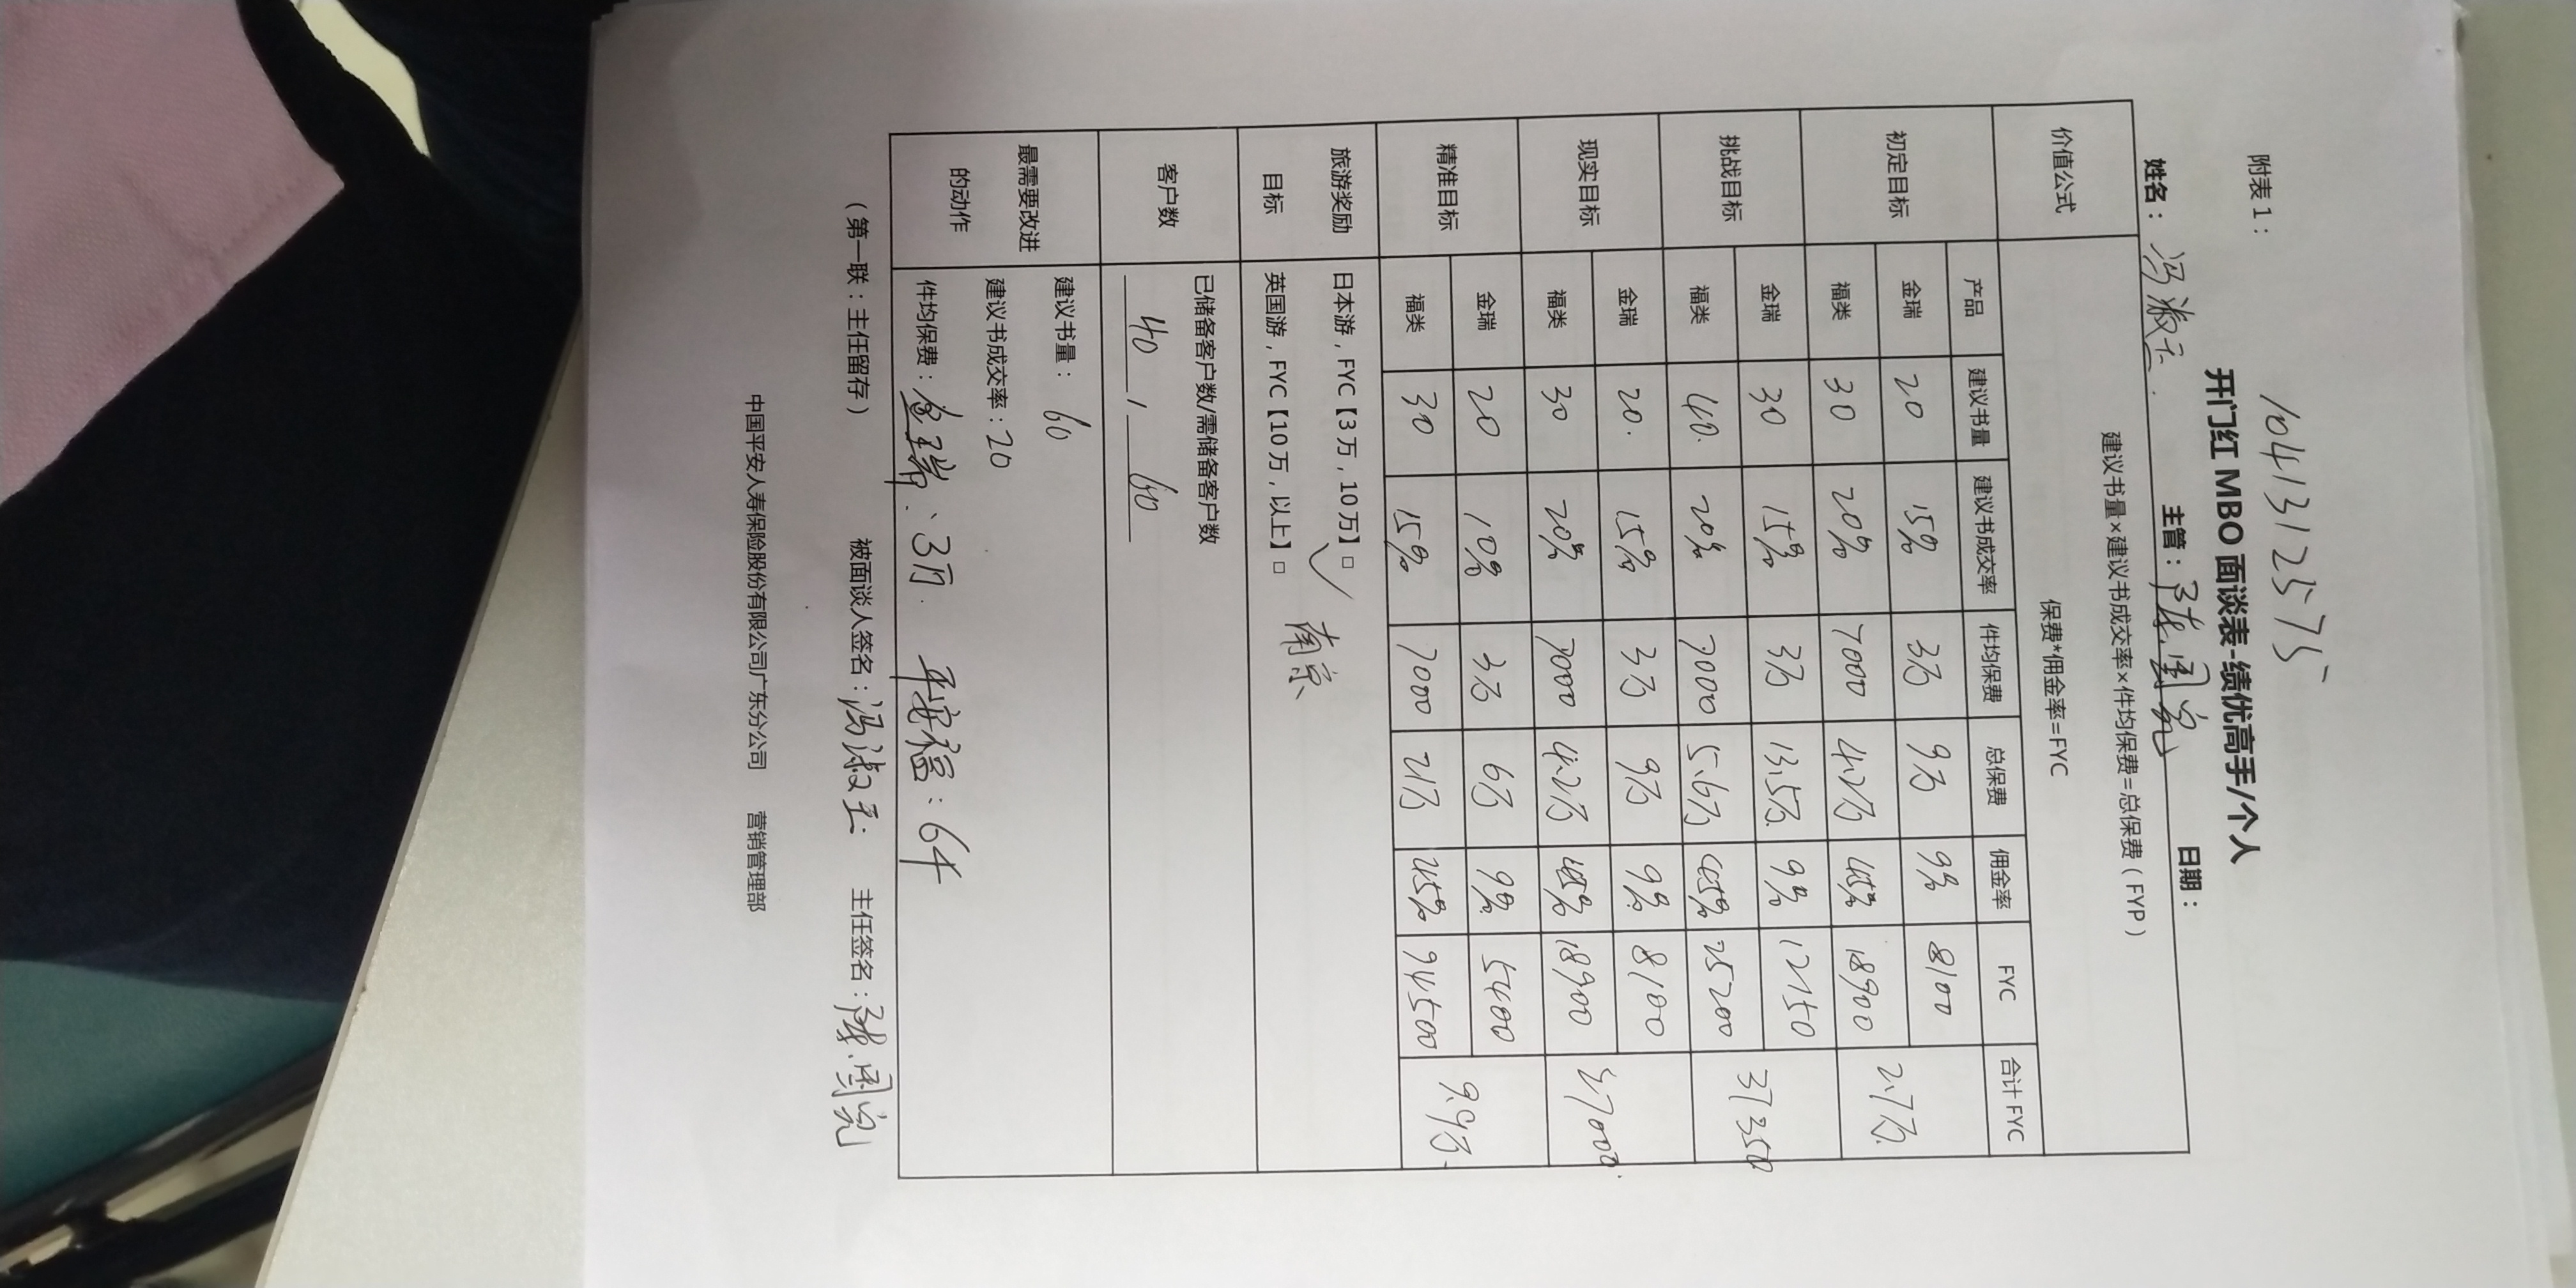 1041312575
附表1：
开门红 MBO 面谈表-绩优高手/个人
姓名： 冯淑玉. 主管： 陈国亮 日期：
价值公式 建议书量×建议书成交率×件均保费=总保费（FYP）
保费*佣金率=FYC
产品 建议书量 建议书成交率 件均保费 总保费 佣金率 FYC 合计 FYC
初定目标 金瑞 20 15% 3万 9万 9% 8100 2.7万.
福类 30 20% 7000 4.2万 45% 18900
挑战目标 金瑞 30 15% 3万 13.5万. 9% 12150 37350
福类 40. 20% 7000 5.6万 45% 25200
现实目标 金瑞 20. 15% 3万 9万 9% 8100 27000.
福类 30 20% 7000 4.2万 45% 18900
精准目标 金瑞 20 10% 3万 6万 9% 5400 9.9万.
福类 30 15% 7000 21万 45% 94500
旅游奖励目标 日本游，FYC【3万，10万】□ ✓ 南京
英国游，FYC【10万，以上】□
客户数 已储备客户数/需储备客户数
40 / 60
最需要改进的动作 建议书量： 60
建议书成交率：20
件均保费：金瑞、3万. 平安福：6千
（第一联：主任留存） 被面谈人签名：冯淑玉 主任签名：陈国亮
中国平安人寿保险股份有限公司广东分公司 营销管理部